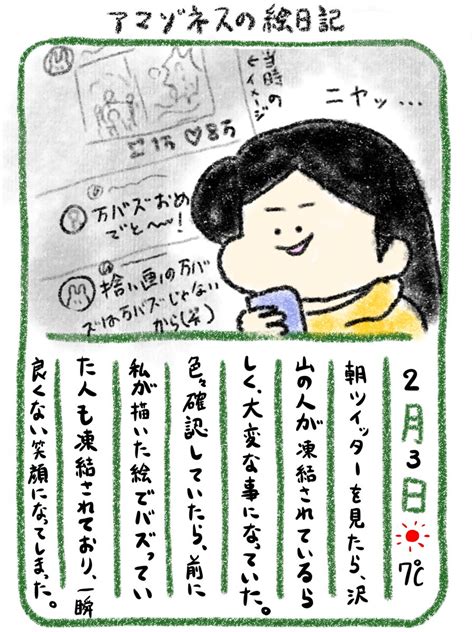 アマゾネスの絵日記
当時の
←イメージ
ニヤッ...
1万 8万
万バズおめ
でと〜〜!
拾い画の万バ
ズは万バズじゃない
から(笑)
2月3日
7℃
朝ツイッターを見たら、沢
山の人が凍結されているら
しく、大変な事になっていた。
色々確認していたら、前に
私が描いた絵でバズってい
た人も凍結されており、一瞬
良くない笑顔になってしまった。